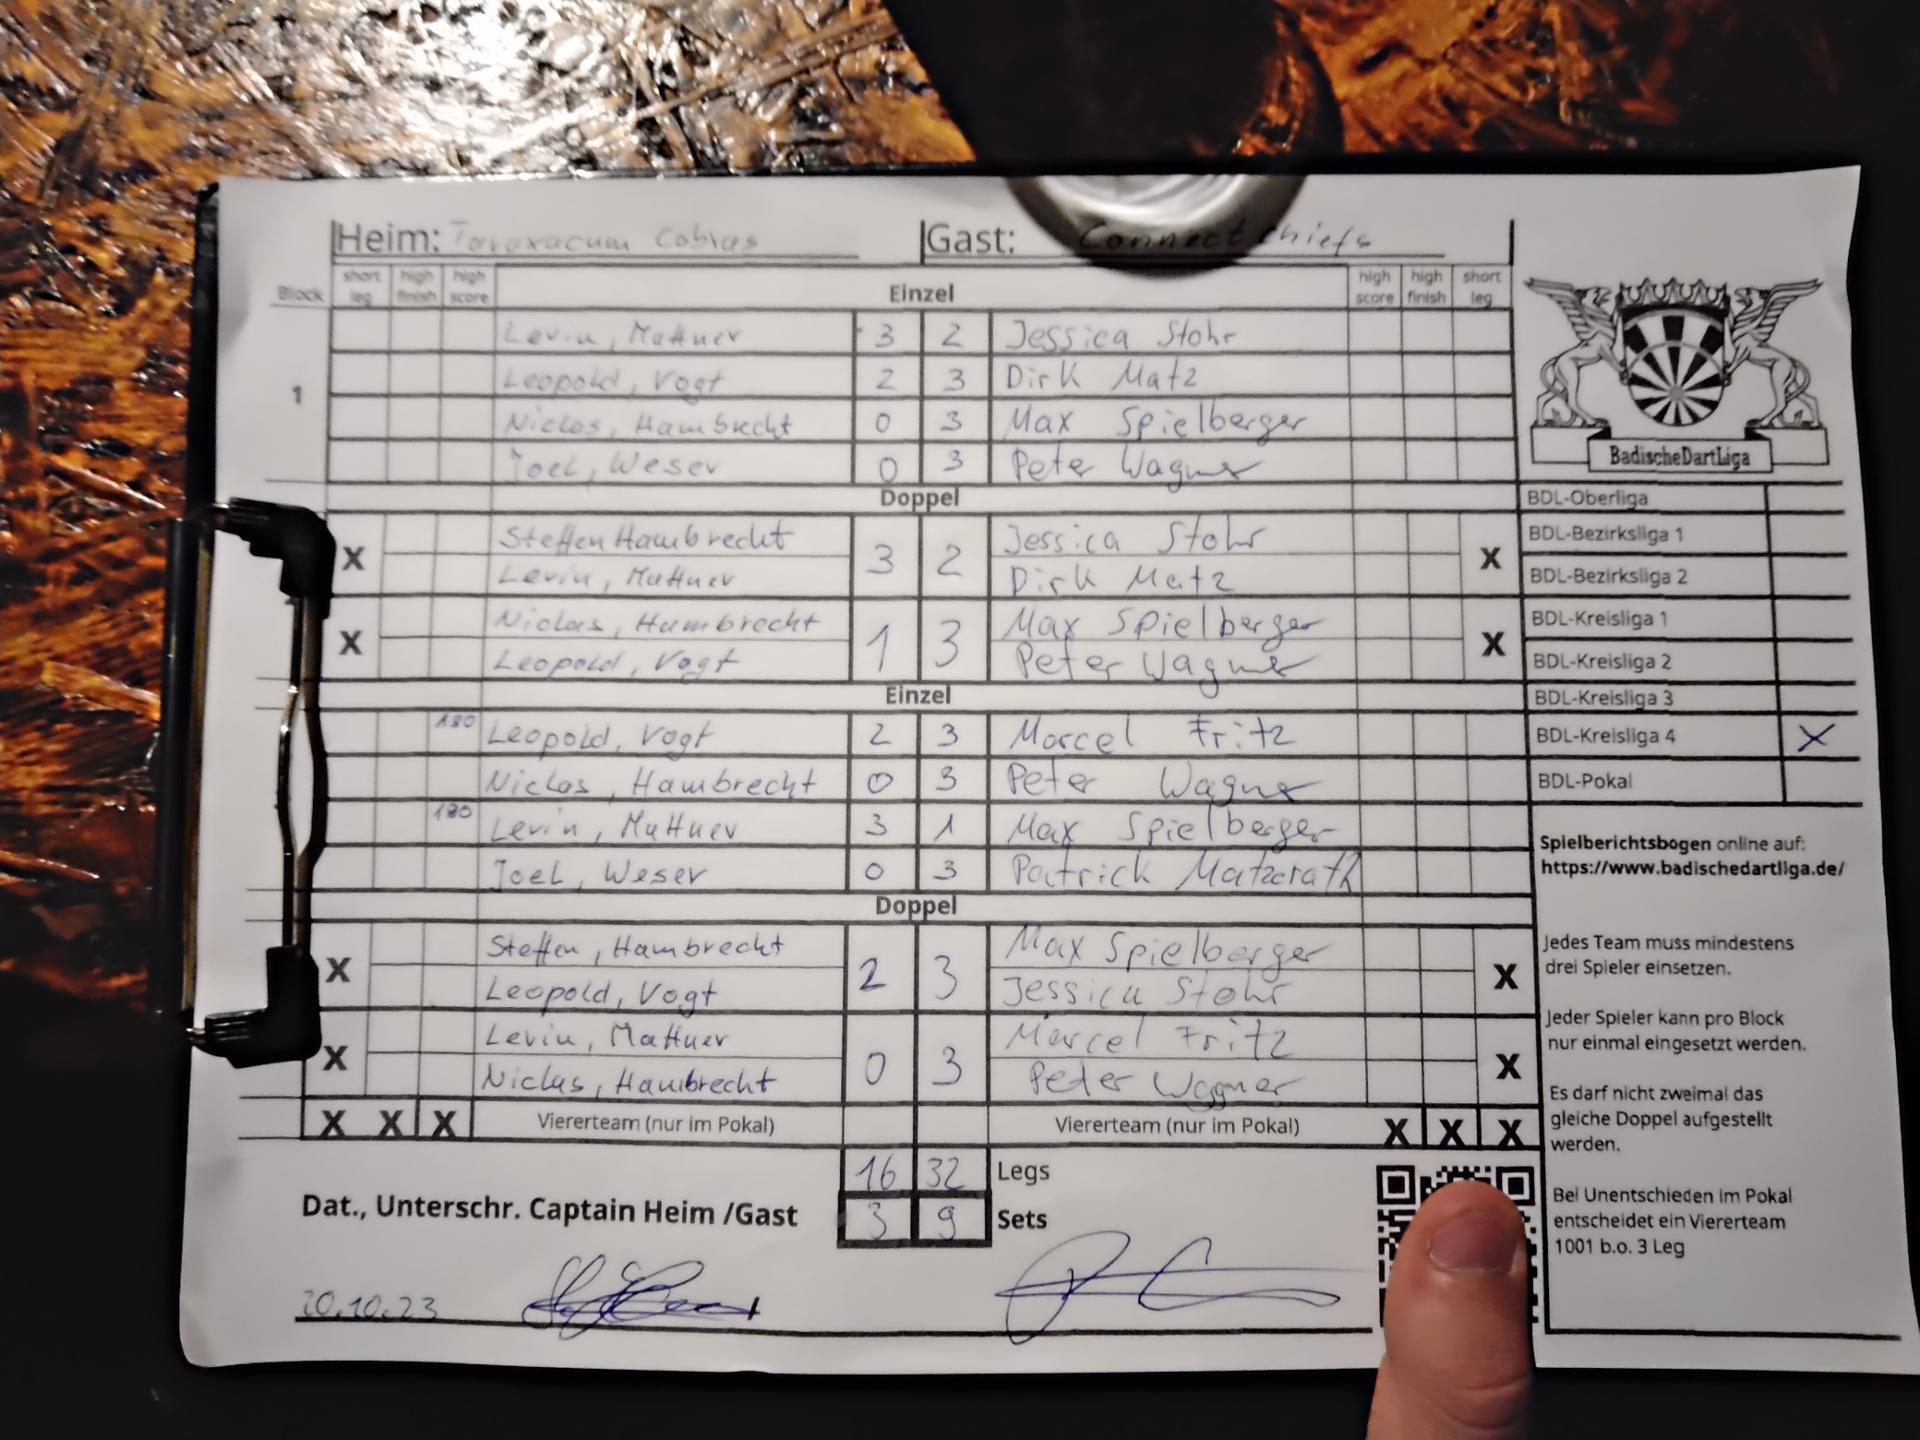 Heim: Taraxacum Cobras Gast: Connect chiefs
Block short leg high finish high score Einzel high score high finish short leg
1
Levin, Mattner 3 2 Jessica Stohr
Leopold, Vogt 2 3 Dirk Matz
Niclas, Hambrecht 0 3 Max Spielberger
Joel, Weser 0 3 Peter Wagner
Doppel
X Steffen Hambrecht 3 2 Jessica Stohr X
Levin, Mattner Dirk Matz
X Niclas, Hambrecht 1 3 Max Spielberger X
Leopold, Vogt Peter Wagner
Einzel
180 Leopold, Vogt 2 3 Marcel Fritz
Niclas, Hambrecht 0 3 Peter Wagner
180 Levin, Mattner 3 1 Max Spielberger
Joel, Weser 0 3 Patrick Matzerath
Doppel
X Steffen, Hambrecht 2 3 Max Spielberger X
Leopold, Vogt Jessica Stohr
X Levin, Mattner 0 3 Marcel Fritz X
Niclas, Hambrecht Peter Wagner
X X X Viererteam (nur im Pokal) Viererteam (nur im Pokal) X X X
16 32 Legs
Dat., Unterschr. Captain Heim /Gast 3 9 Sets
20.10.23
BadischeDartLiga
BDL-Oberliga
BDL-Bezirksliga 1
BDL-Bezirksliga 2
BDL-Kreisliga 1
BDL-Kreisliga 2
BDL-Kreisliga 3
BDL-Kreisliga 4 X
BDL-Pokal
Spielberichtsbogen online auf:
https://www.badischedartliga.de/
Jedes Team muss mindestens
drei Spieler einsetzen.
Jeder Spieler kann pro Block
nur einmal eingesetzt werden.
Es darf nicht zweimal das
gleiche Doppel aufgestellt
werden.
Bei Unentschieden im Pokal
entscheidet ein Viererteam
1001 b.o. 3 Leg